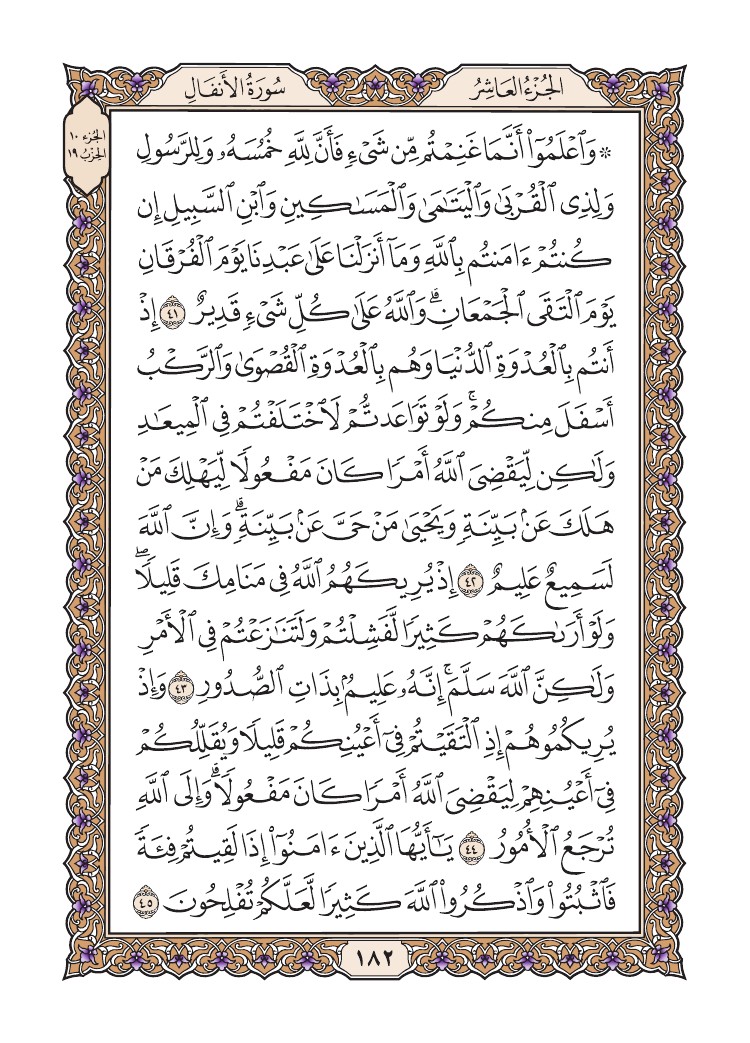 الجُزْءُ العَاشِرُ
سُورَةُ الأَنفَالِ
الجُزء ١٠
الحِزْبُ ١٩
۞ وَٱعۡلَمُوٓاْ أَنَّمَا غَنِمۡتُم مِّن شَيۡءٖ فَأَنَّ لِلَّهِ خُمُسَهُۥ وَلِلرَّسُولِ
وَلِذِي ٱلۡقُرۡبَىٰ وَٱلۡيَتَٰمَىٰ وَٱلۡمَسَٰكِينِ وَٱبۡنِ ٱلسَّبِيلِ إِن
كُنتُمۡ ءَامَنتُم بِٱللَّهِ وَمَآ أَنزَلۡنَا عَلَىٰ عَبۡدِنَا يَوۡمَ ٱلۡفُرۡقَانِ
يَوۡمَ ٱلۡتَقَى ٱلۡجَمۡعَانِۗ وَٱللَّهُ عَلَىٰ كُلِّ شَيۡءٖ قَدِيرٌ ٤١ إِذۡ
أَنتُم بِٱلۡعُدۡوَةِ ٱلدُّنۡيَا وَهُم بِٱلۡعُدۡوَةِ ٱلۡقُصۡوَىٰ وَٱلرَّكۡبُ
أَسۡفَلَ مِنكُمۡۚ وَلَوۡ تَوَاعَدتُّمۡ لَٱخۡتَلَفۡتُمۡ فِي ٱلۡمِيعَٰدِ
وَلَٰكِن لِّيَقۡضِيَ ٱللَّهُ أَمۡرٗا كَانَ مَفۡعُولٗا لِّيَهۡلِكَ مَنۡ
هَلَكَ عَنۢ بَيِّنَةٖ وَيَحۡيَىٰ مَنۡ حَيَّ عَنۢ بَيِّنَةٖۗ وَإِنَّ ٱللَّهَ
لَسَمِيعٌ عَلِيمٌ ٤٢ إِذۡ يُرِيكَهُمُ ٱللَّهُ فِي مَنَامِكَ قَلِيلٗاۖ
وَلَوۡ أَرَىٰكَهُمۡ كَثِيرٗا لَّفَشِلۡتُمۡ وَلَتَنَٰزَعۡتُمۡ فِي ٱلۡأَمۡرِ
وَلَٰكِنَّ ٱللَّهَ سَلَّمَۚ إِنَّهُۥ عَلِيمُۢ بِذَاتِ ٱلصُّدُورِ ٤٣ وَإِذۡ
يُرِيكُمُوهُمۡ إِذِ ٱلۡتَقَيۡتُمۡ فِيٓ أَعۡيُنِكُمۡ قَلِيلٗا وَيُقَلِّلُكُمۡ
فِيٓ أَعۡيُنِهِمۡ لِيَقۡضِيَ ٱللَّهُ أَمۡرٗا كَانَ مَفۡعُولٗاۗ وَإِلَى ٱللَّهِ
تُرۡجَعُ ٱلۡأُمُورُ ٤٤ يَٰٓأَيُّهَا ٱلَّذِينَ ءَامَنُوٓاْ إِذَا لَقِيتُمۡ فِئَةٗ
فَٱثۡبُتُواْ وَٱذۡكُرُواْ ٱللَّهَ كَثِيرٗا لَّعَلَّكُمۡ تُفۡلِحُونَ ٤٥
١٨٢